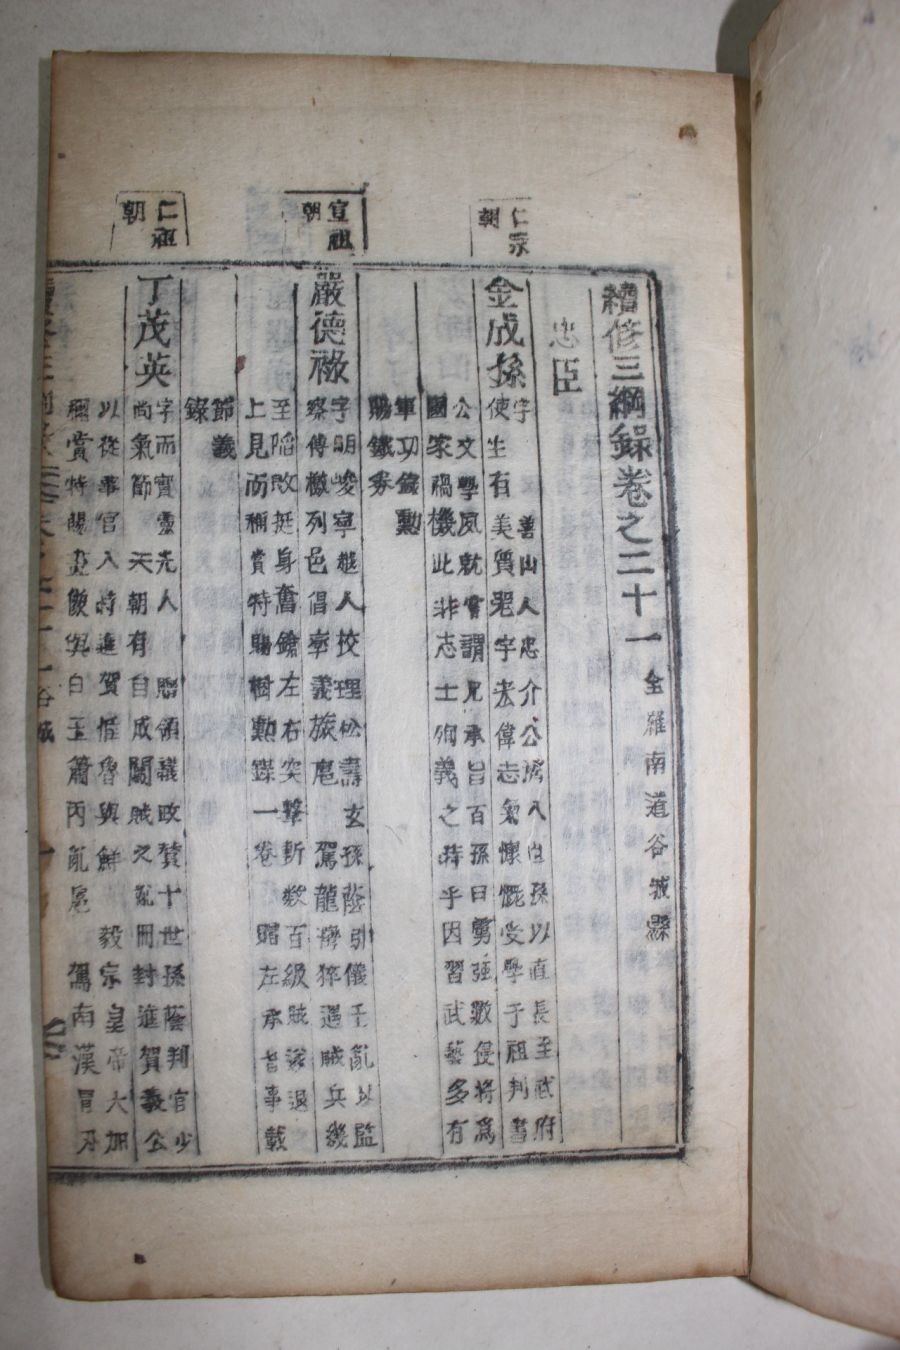 續修三綱錄卷之二十一 全羅南道谷城縣
忠臣
仁宗朝
金成孫
字 善山人忠介公濟八世孫以直長至武府
使生有美質器宇宏偉志氣慷慨受學于祖判書
公文學夙就嘗謂兄承旨百孫曰勇强數侵將爲
國家禍機此非志士殉義之時乎因習武藝多有
軍功錄勳
賜鐵券
宣祖朝
嚴德祿
字明峻寧越人校理松壽玄孫蔭引儀壬亂以監
察傳檄列邑倡率義旅扈 駕龍灣猝遇賊兵幾
至陷敗挺身奮鎗左右突擊斬數百級賊遂退
上見而稱賞特賜樹勳錄一卷 贈左承旨事載
節義
錄
仁祖朝
丁茂英
字而實靈光人 贈領議政贊十世孫蔭判官少
尚氣節 天朝有自成闖賊之亂冊封進賀義公
以從事官入 特進賀 與鮮 毅宗皇帝大加
稱賞特賜畫 與白玉簫丙亂扈 駕南漢冒刃